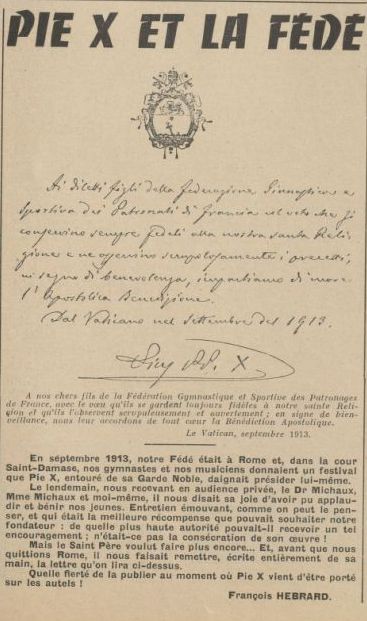 PIE X ET LA FÉDÉ
Ai diletti figli della Federazione Ginnastica e
Sportiva dei Patronati di Francia col voto che si
conservino sempre fedeli alla nostra santa Reli-
gione e ne osservino scrupolosamente i precetti,
in segno di benevolenza, impartiamo di cuore
l'Apostolica Benedizione.
Dal Vaticano nel settembre del 1913.
Pius PP. X.
A nos chers fils de la Fédération Gymnastique et Sportive des Patronages
de France, avec le vœu qu'ils se gardent toujours fidèles à notre sainte Reli-
gion et qu'ils l'observent scrupuleusement et ouvertement ; en signe de bien-
veillance, nous leur accordons de tout cœur la Bénédiction Apostolique.
Le Vatican, septembre 1913.
En septembre 1913, notre Fédé était à Rome et, dans la cour
Saint-Damase, nos gymnastes et nos musiciens donnaient un festival
que Pie X, entouré de sa Garde Noble, daignait présider lui-même.
Le lendemain, nous recevant en audience privée, le Dr Michaux,
Mme Michaux et moi-même, il nous disait sa joie d'avoir pu applau-
dir et bénir nos jeunes. Entretien émouvant, comme on peut le pen-
ser, et qui était la meilleure récompense que pouvait souhaiter notre
fondateur : de quelle plus haute autorité pouvait-il recevoir un tel
encouragement ; n'était-ce pas la consécration de son œuvre !
Mais le Saint Père voulut faire plus encore... Et, avant que nous
quittions Rome, il nous faisait remettre, écrite entièrement de sa
main, la lettre qu'on lira ci-dessus.
Quelle fierté de la publier au moment où Pie X vient d'être porté
sur les autels !
François HEBRARD.